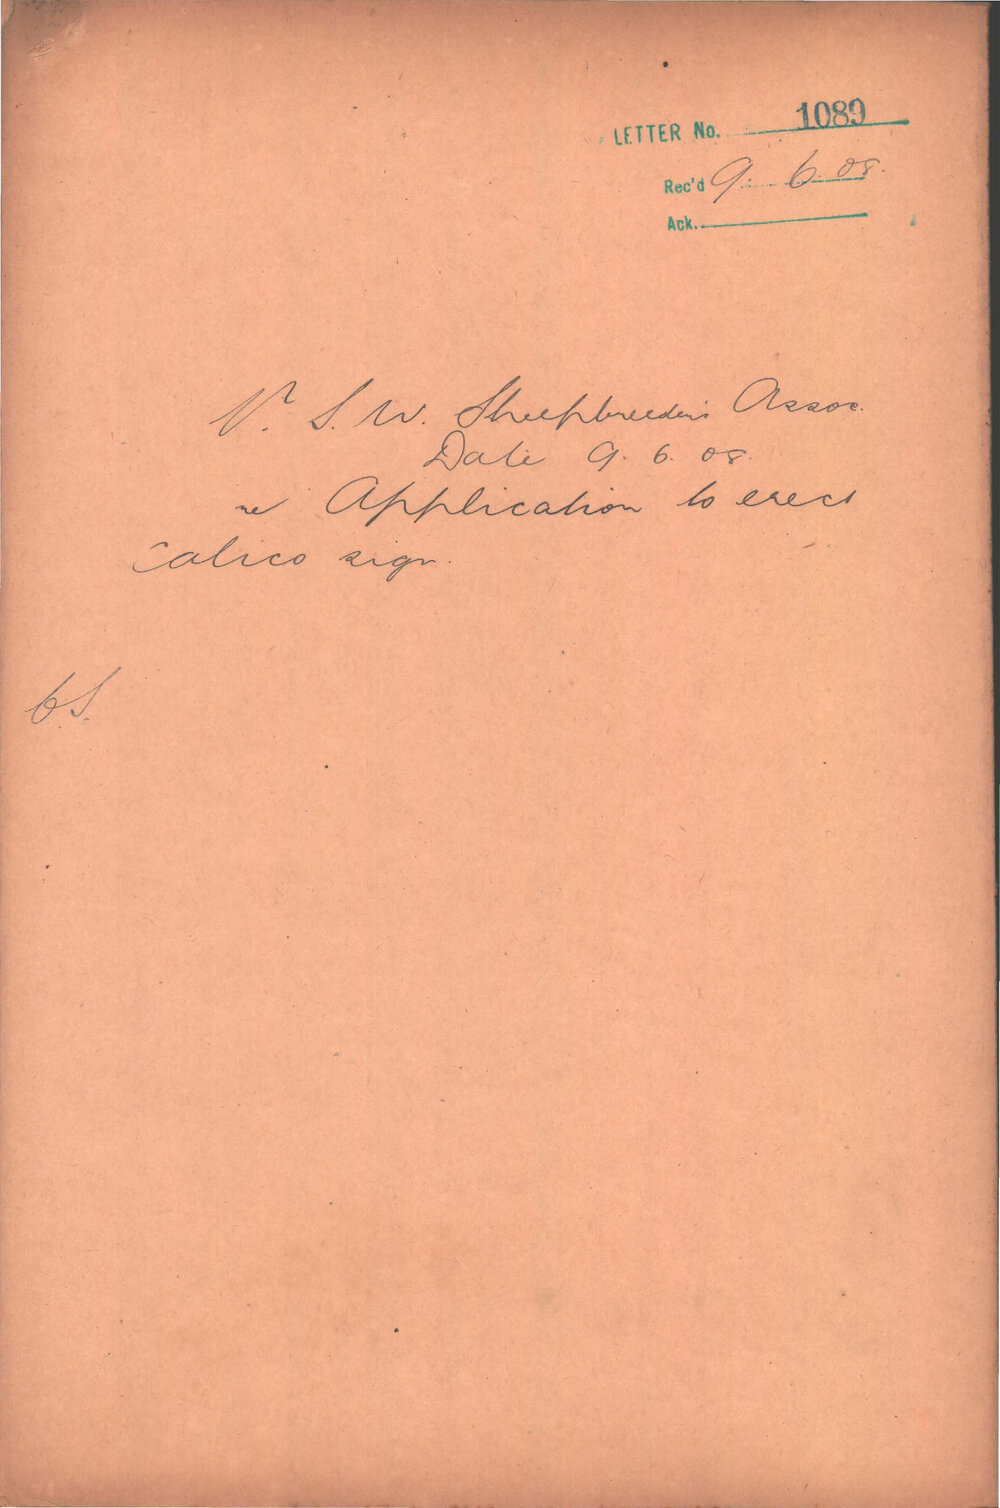 LETTER No. 1089
Rec'd 9. 6. 08.
Ack.
N. S. W. Sheepbreeders Assoc.
Date 9. 6. 08.
re Application to erect
calico sign.